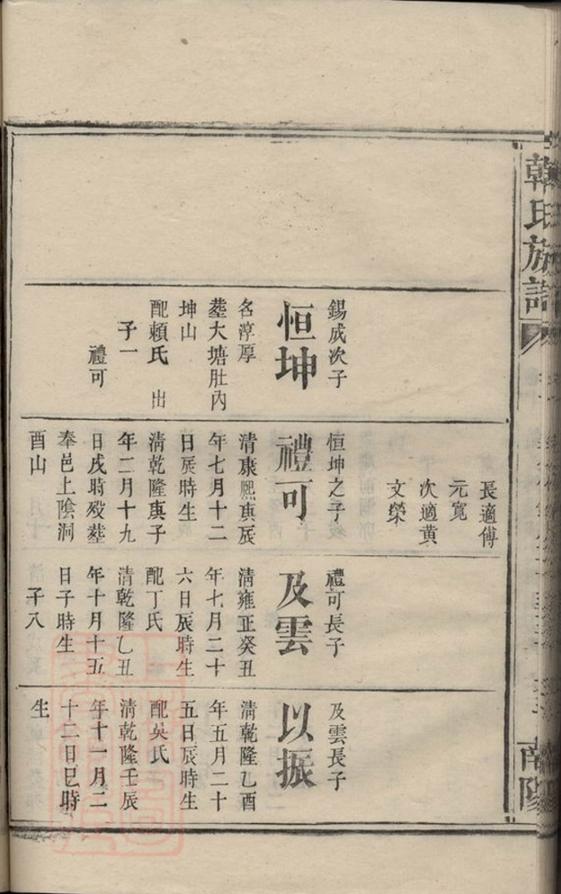 韓氏族譜
南陽
錫成次子
恒坤
名淳厚
塟大塘肚內
坤山
配賴氏 出
子一
禮可
長適傅
元寬
次適黃
文榮
恒坤之子
禮可
清康熙庚辰
年七月十二
日辰時生
清乾隆庚子
年二月十九
日戌時殁塟
奉邑上陰洞
酉山
禮可長子
及雲
清雍正癸丑
年七月二十
六日辰時生
配丁氏
清乾隆乙丑
年十月十五
日子時生
子入
及雲長子
以振
清乾隆乙酉
年五月二十
五日辰時生
配吳氏
清乾隆壬辰
年十一月二
十二日巳時
生